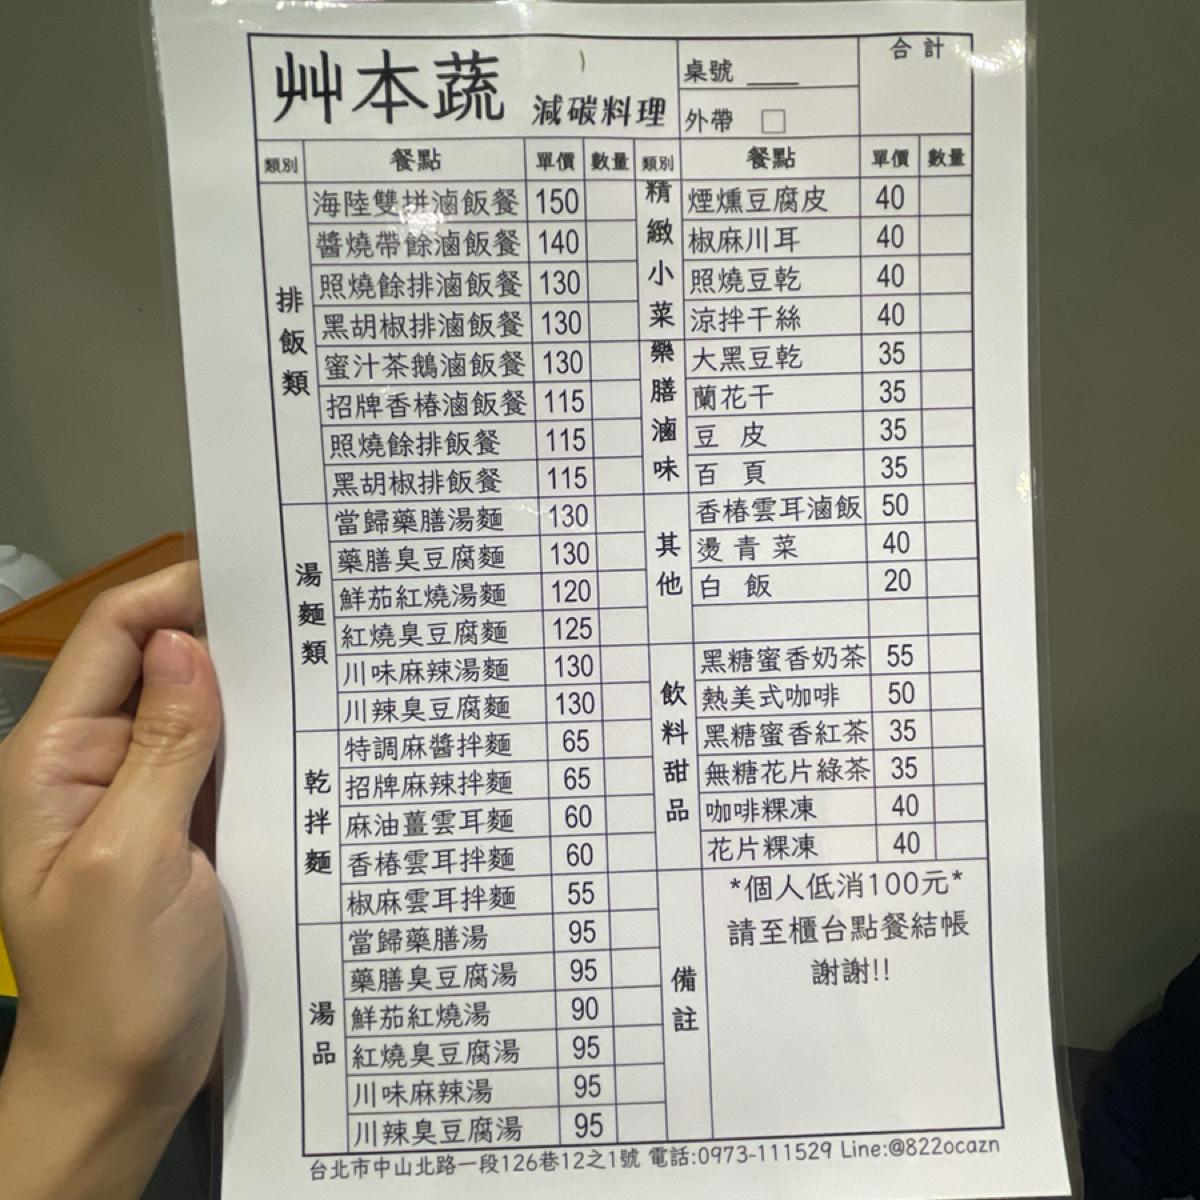 艸本蔬 減碳料理
桌號
外帶
合計
類別 餐點 單價 數量
排飯類
海陸雙拼滷飯餐 150
醬燒帶餘滷飯餐 140
照燒餘排滷飯餐 130
黑胡椒排滷飯餐 130
蜜汁茶鵝滷飯餐 130
招牌香椿滷飯餐 115
照燒餘排飯餐 115
黑胡椒排飯餐 115
湯麵類
當歸藥膳湯麵 130
藥膳臭豆腐麵 130
鮮茄紅燒湯麵 120
紅燒臭豆腐麵 125
川味麻辣湯麵 130
川辣臭豆腐麵 130
乾拌麵
特調麻醬拌麵 65
招牌麻辣拌麵 65
麻油薑雲耳麵 60
香椿雲耳拌麵 60
椒麻雲耳拌麵 55
湯品
當歸藥膳湯 95
藥膳臭豆腐湯 95
鮮茄紅燒湯 90
紅燒臭豆腐湯 95
川味麻辣湯 95
川辣臭豆腐湯 95
類別 餐點 單價 數量
精緻小菜
煙燻豆腐皮 40
椒麻川耳 40
照燒豆乾 40
涼拌干絲 40
藥膳滷味
大黑豆乾 35
蘭花干 35
豆皮 35
百頁 35
其他
香椿雲耳滷飯 50
燙青菜 40
白飯 20
飲料甜品
黑糖蜜香奶茶 55
熱美式咖啡 50
黑糖蜜香紅茶 35
無糖花片綠茶 35
咖啡粿凍 40
花片粿凍 40
備註
*個人低消100元*
請至櫃台點餐結帳
謝謝!!
台北市中山北路一段126巷12之1號 電話:0973-111529 Line:@822ocazn